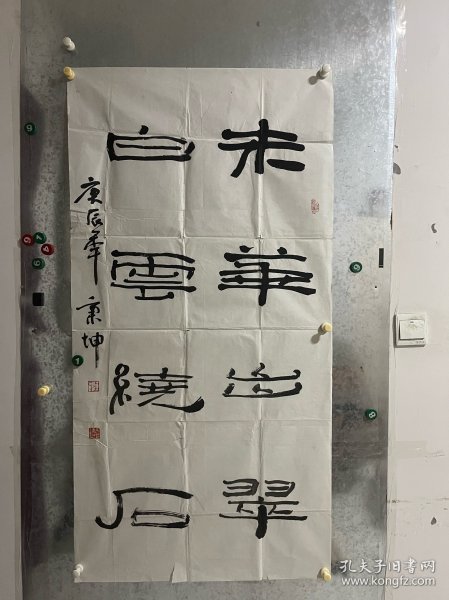 未華出翠
白雲繞石
庚辰年
坤
孔夫子旧书网
www.kongfz.com